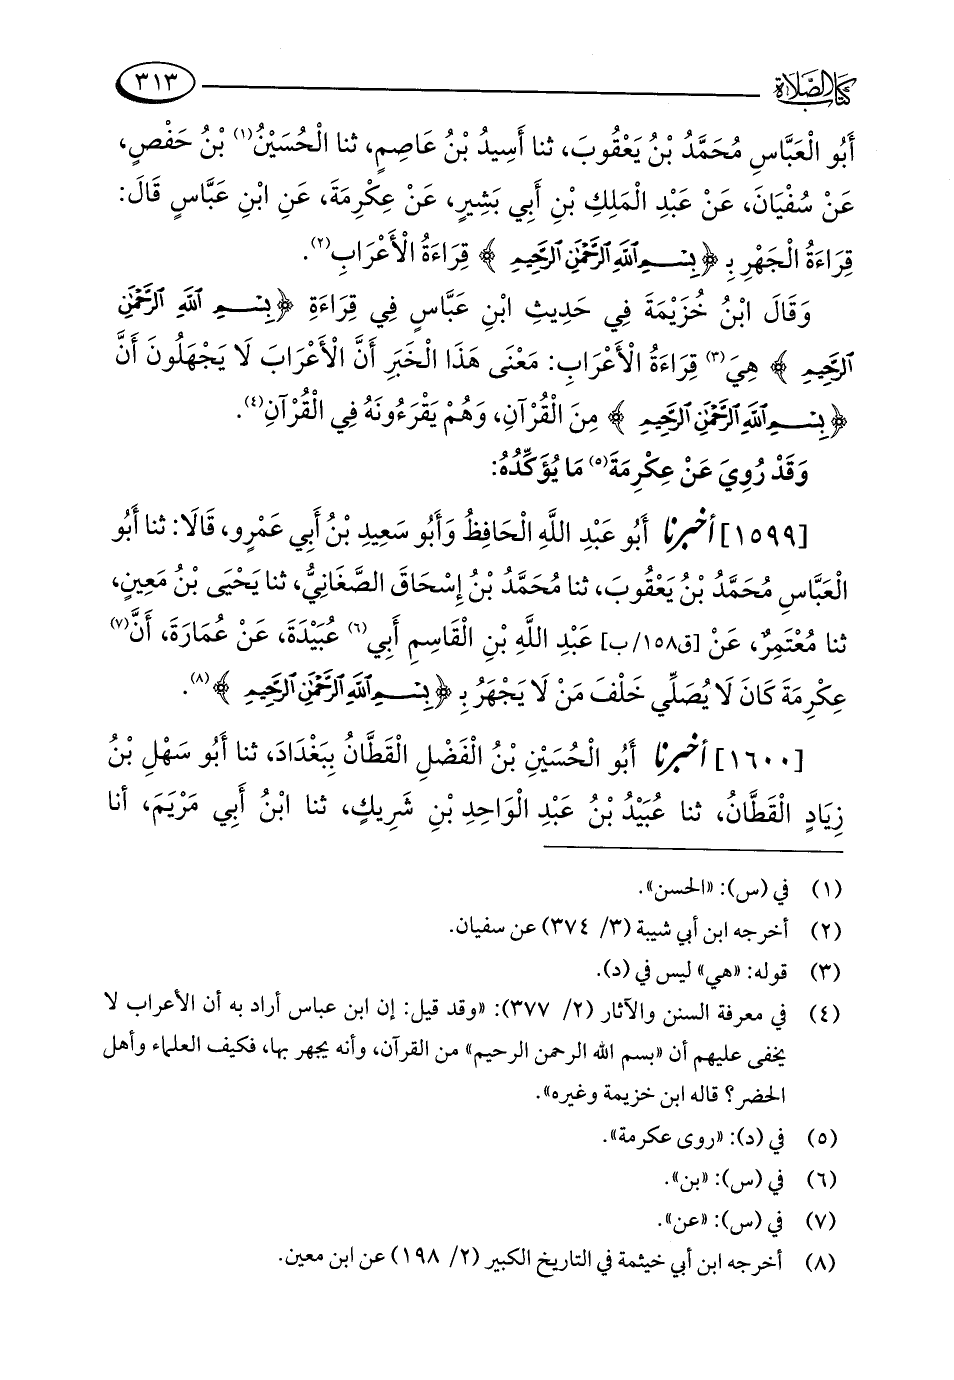 كتاب الصلاة ٣١٣
أَبُو الْعَبَّاسِ مُحَمَّدُ بْنُ يَعْقُوبَ، ثنا أَسِيدُ بْنُ عَاصِمٍ، ثنا الْحُسَيْنُ(١) بْنُ حَفْصٍ،
عَنْ سُفْيَانَ، عَنْ عَبْدِ الْمَلِكِ بْنِ أَبِي بَشِيرٍ، عَنْ عِكْرِمَةَ، عَنِ ابْنِ عَبَّاسٍ قَالَ:
قِرَاءَةُ الْجَهْرِ بِـ ﴿بِسْمِ اللَّهِ الرَّحْمَٰنِ الرَّحِيمِ﴾ قِرَاءَةُ الْأَعْرَابِ(٢).
وَقَالَ ابْنُ خُزَيْمَةَ فِي حَدِيثِ ابْنِ عَبَّاسٍ فِي قِرَاءَةِ ﴿بِسْمِ اللَّهِ الرَّحْمَٰنِ
الرَّحِيمِ﴾ هِيَ(٣) قِرَاءَةُ الْأَعْرَابِ: مَعْنَى هَذَا الْخَبَرِ أَنَّ الْأَعْرَابَ لَا يَجْهَلُونَ أَنَّ
﴿بِسْمِ اللَّهِ الرَّحْمَٰنِ الرَّحِيمِ﴾ مِنَ الْقُرْآنِ، وَهُمْ يَقْرَءُونَهُ فِي الْقُرْآنِ(٤).
وَقَدْ رُوِيَ عَنْ عِكْرِمَةَ(٥) مَا يُؤَكِّدُهُ:
[١٥٩٩] أخبرنا أَبُو عَبْدِ اللَّهِ الْحَافِظُ وَأَبُو سَعِيدِ بْنُ أَبِي عَمْرٍو، قَالَا: ثنا أَبُو
الْعَبَّاسِ مُحَمَّدُ بْنُ يَعْقُوبَ، ثنا مُحَمَّدُ بْنُ إِسْحَاقَ الصَّغَانِيُّ، ثنا يَحْيَى بْنُ مَعِينٍ،
ثنا مُعْتَمِرٌ، عَنْ [ق١٥٨/ب] عَبْدِ اللَّهِ بْنِ الْقَاسِمِ أَبِي(٦) عُبَيْدَةَ، عَنْ عُمَارَةَ، أَنَّ(٧)
عِكْرِمَةَ كَانَ لَا يُصَلِّي خَلْفَ مَنْ لَا يَجْهَرُ بِـ ﴿بِسْمِ اللَّهِ الرَّحْمَٰنِ الرَّحِيمِ﴾(٨).
[١٦٠٠] أخبرنا أَبُو الْحُسَيْنِ بْنُ الْفَضْلِ الْقَطَّانُ بِبَغْدَادَ، ثنا أَبُو سَهْلِ بْنُ
زِيَادٍ الْقَطَّانُ، ثنا عُبَيْدُ بْنُ عَبْدِ الْوَاحِدِ بْنِ شَرِيكٍ، ثنا ابْنُ أَبِي مَرْيَمَ، أنا
(١) في (س): «الحسن».
(٢) أخرجه ابن أبي شيبة (٣/ ٣٧٤) عن سفيان.
(٣) قوله: «هي» ليس في (د).
(٤) في معرفة السنن والآثار (٢/ ٣٧٧): «وقد قيل: إن ابن عباس أراد به أن الأعراب لا
يخفى عليهم أن «بسم الله الرحمن الرحيم» من القرآن، وأنه يجهر بها، فكيف العلماء وأهل
الحضر؟ قاله ابن خزيمة وغيره».
(٥) في (د): «روى عكرمة».
(٦) في (س): «بن».
(٧) في (س): «عن».
(٨) أخرجه ابن أبي خيثمة في التاريخ الكبير (٢/ ١٩٨) عن ابن معين.